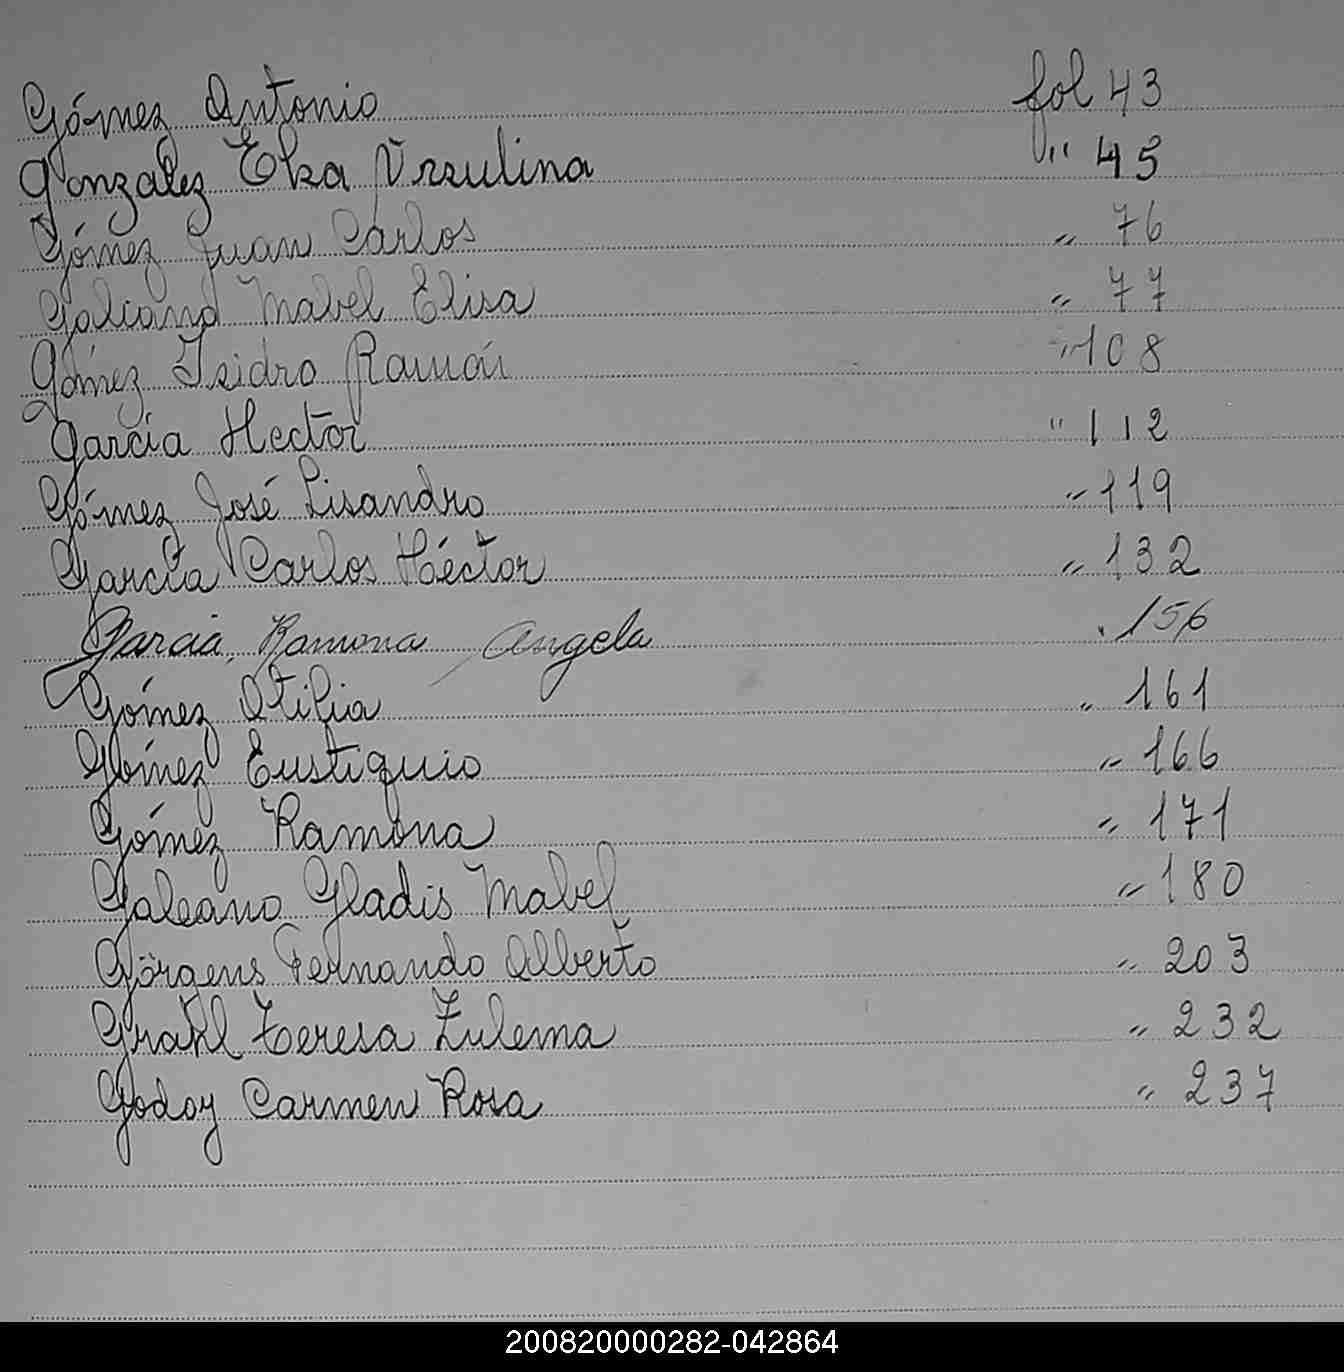 Gómez Antonio fol 43
Gonzalez Elsa Ursulina " 45
Gómez Juan Carlos " 76
Galeano Mabel Elisa " 77
Gómez Isidro Ramón " 108
Garcia Hector " 112
Gómez José Lisandro " 119
García Carlos Héctor " 132
Garcia, Ramona Angela " 156
Gómez Otilia " 161
Gómez Eustiquio " 166
Gómez Ramona " 171
Galeano Gladis Mabel " 180
Görgens Fernando Alberto " 203
Grahl Teresa Zulema " 232
Godoy Carmen Rosa " 237
200820000282-042864